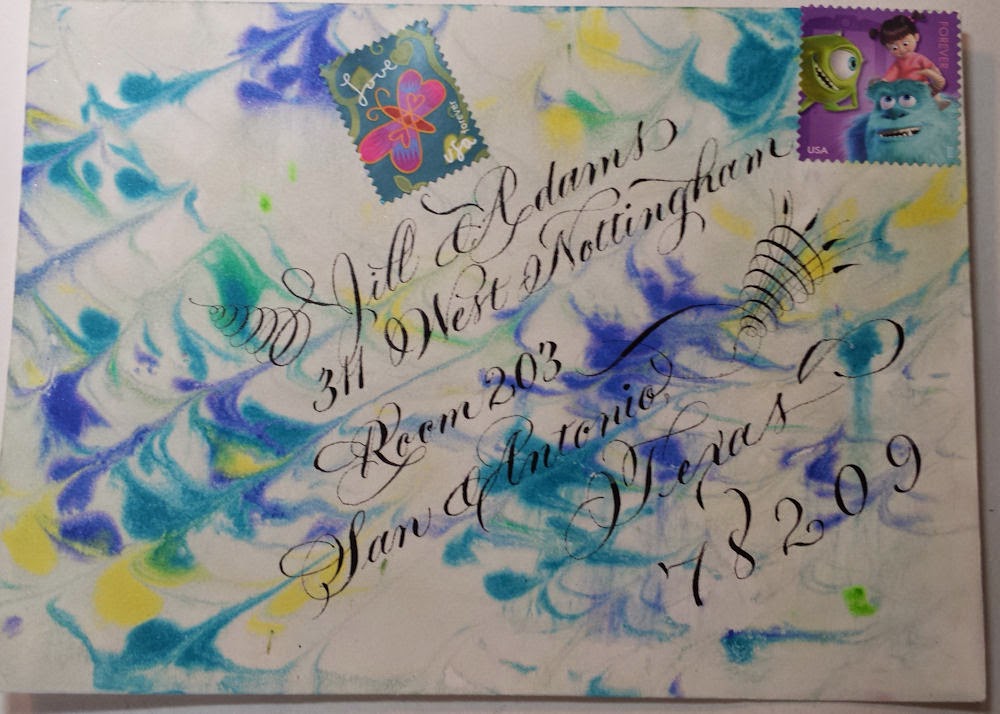 Love
forever
usa
FOREVER
USA
Jill Adams
311 West Nottingham
Room 203
San Antonio,
Texas
78209